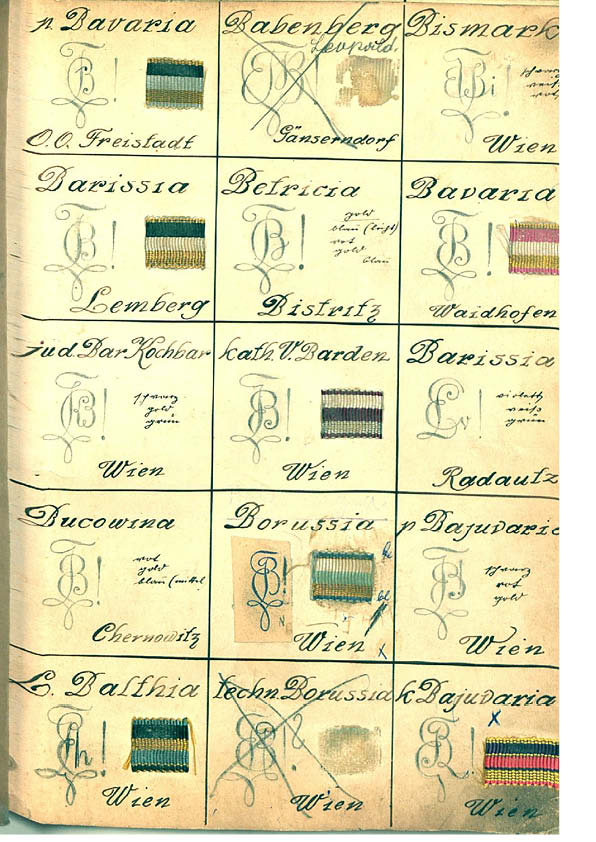 p. Bavaria
B!
O.O. Freistadt
Babenberg
Leopold.
Gänserndorf
Bismark
Bi!
schwarz
weiß
rot
Wien
Barissia
B!
Lemberg
Betricia
B!
gold
blau (licht)
rot
gold
blau
Bistritz
Bavaria
B!
Waidhofen
jud Bar Kochbar
B!
schwarz
gold
grün
Wien
kath V. Barden
B!
Wien
Barissia
violett
weiß
grün
Radautz
Bucowina
B!
rot
gold
blau (mittel
Chernowitz
Borussia
B!
N
bl
Wien
x
p Bajuvaria
B!
schwarz
rot
gold
Wien
L. Balthia
Wien
techn. Borussia
Wien
k Bajuvaria
x
Wien